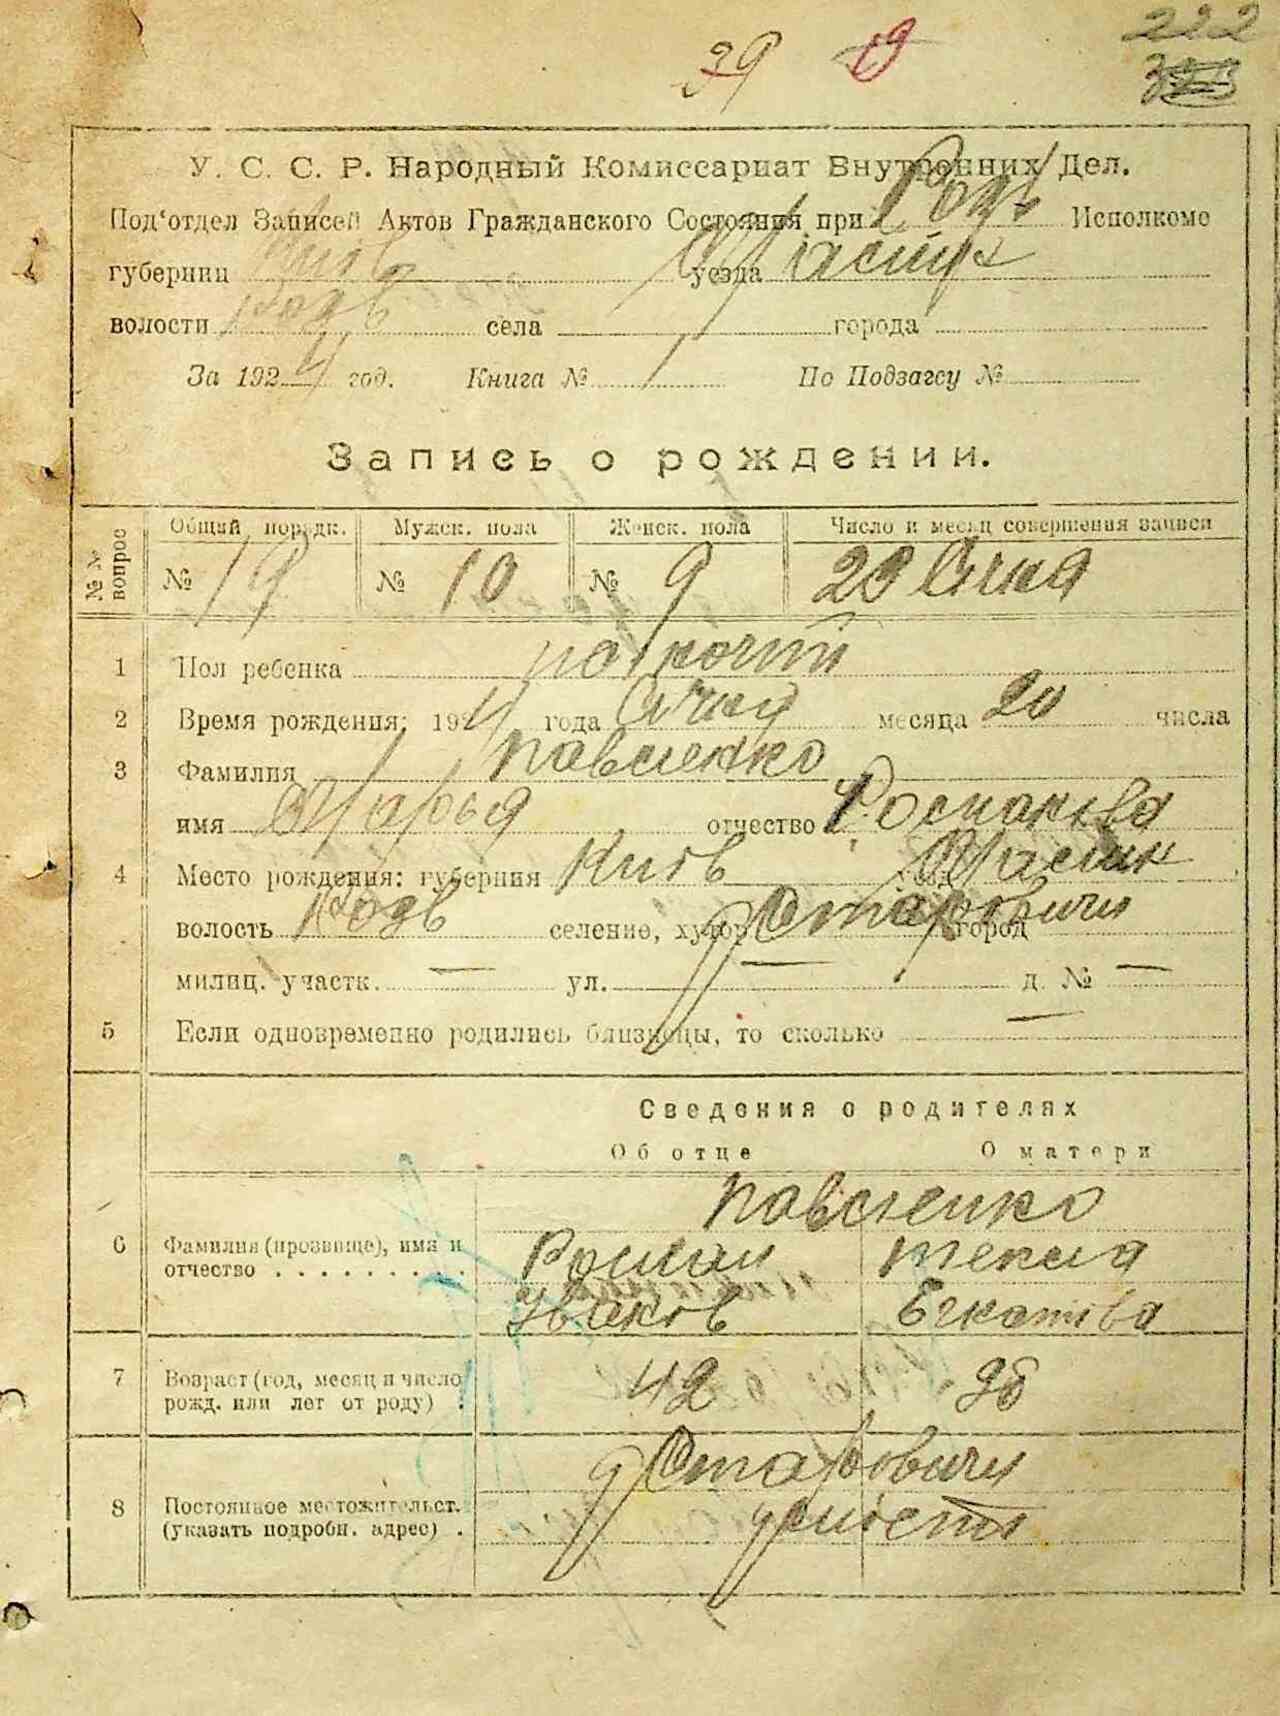 39 19
222
У. С. С. Р. Народный Комиссариат Внутренних Дел.
Под'отдел Записей Актов Гражданского Состояния при Исполкоме
губернии Київ уезда
волости села города
За 1924 год. Книга № По Подзагсу №
Запись о рождении.
№ № вопрос Общий порядк. Мужск. пола Женск. пола Число и месяц совершения записи
№ 19 № 10 № 9 29 Січня
1 Пол ребенка
2 Время рождения: 1924 года Січня месяца 20 числа
3 Фамилия Павленко
имя Марья отчество Романівна
4 Место рождения: губерния Київ
волость селение, хутор Старовичи город
милиц. участк. — ул. — д. № —
5 Если одновременно родились близнецы, то сколько —
Сведения о родителях
Об отце О матери
Павленко
6 Фамилия (прозвище), имя и Роман Текля
отчество . . . . . . . . . Ігнатівна
7 Возраст (год, месяц и число 42
рожд. или лет от роду) .
Старовичи
8 Постоянное местожительст.
(указать подробн. адрес) .